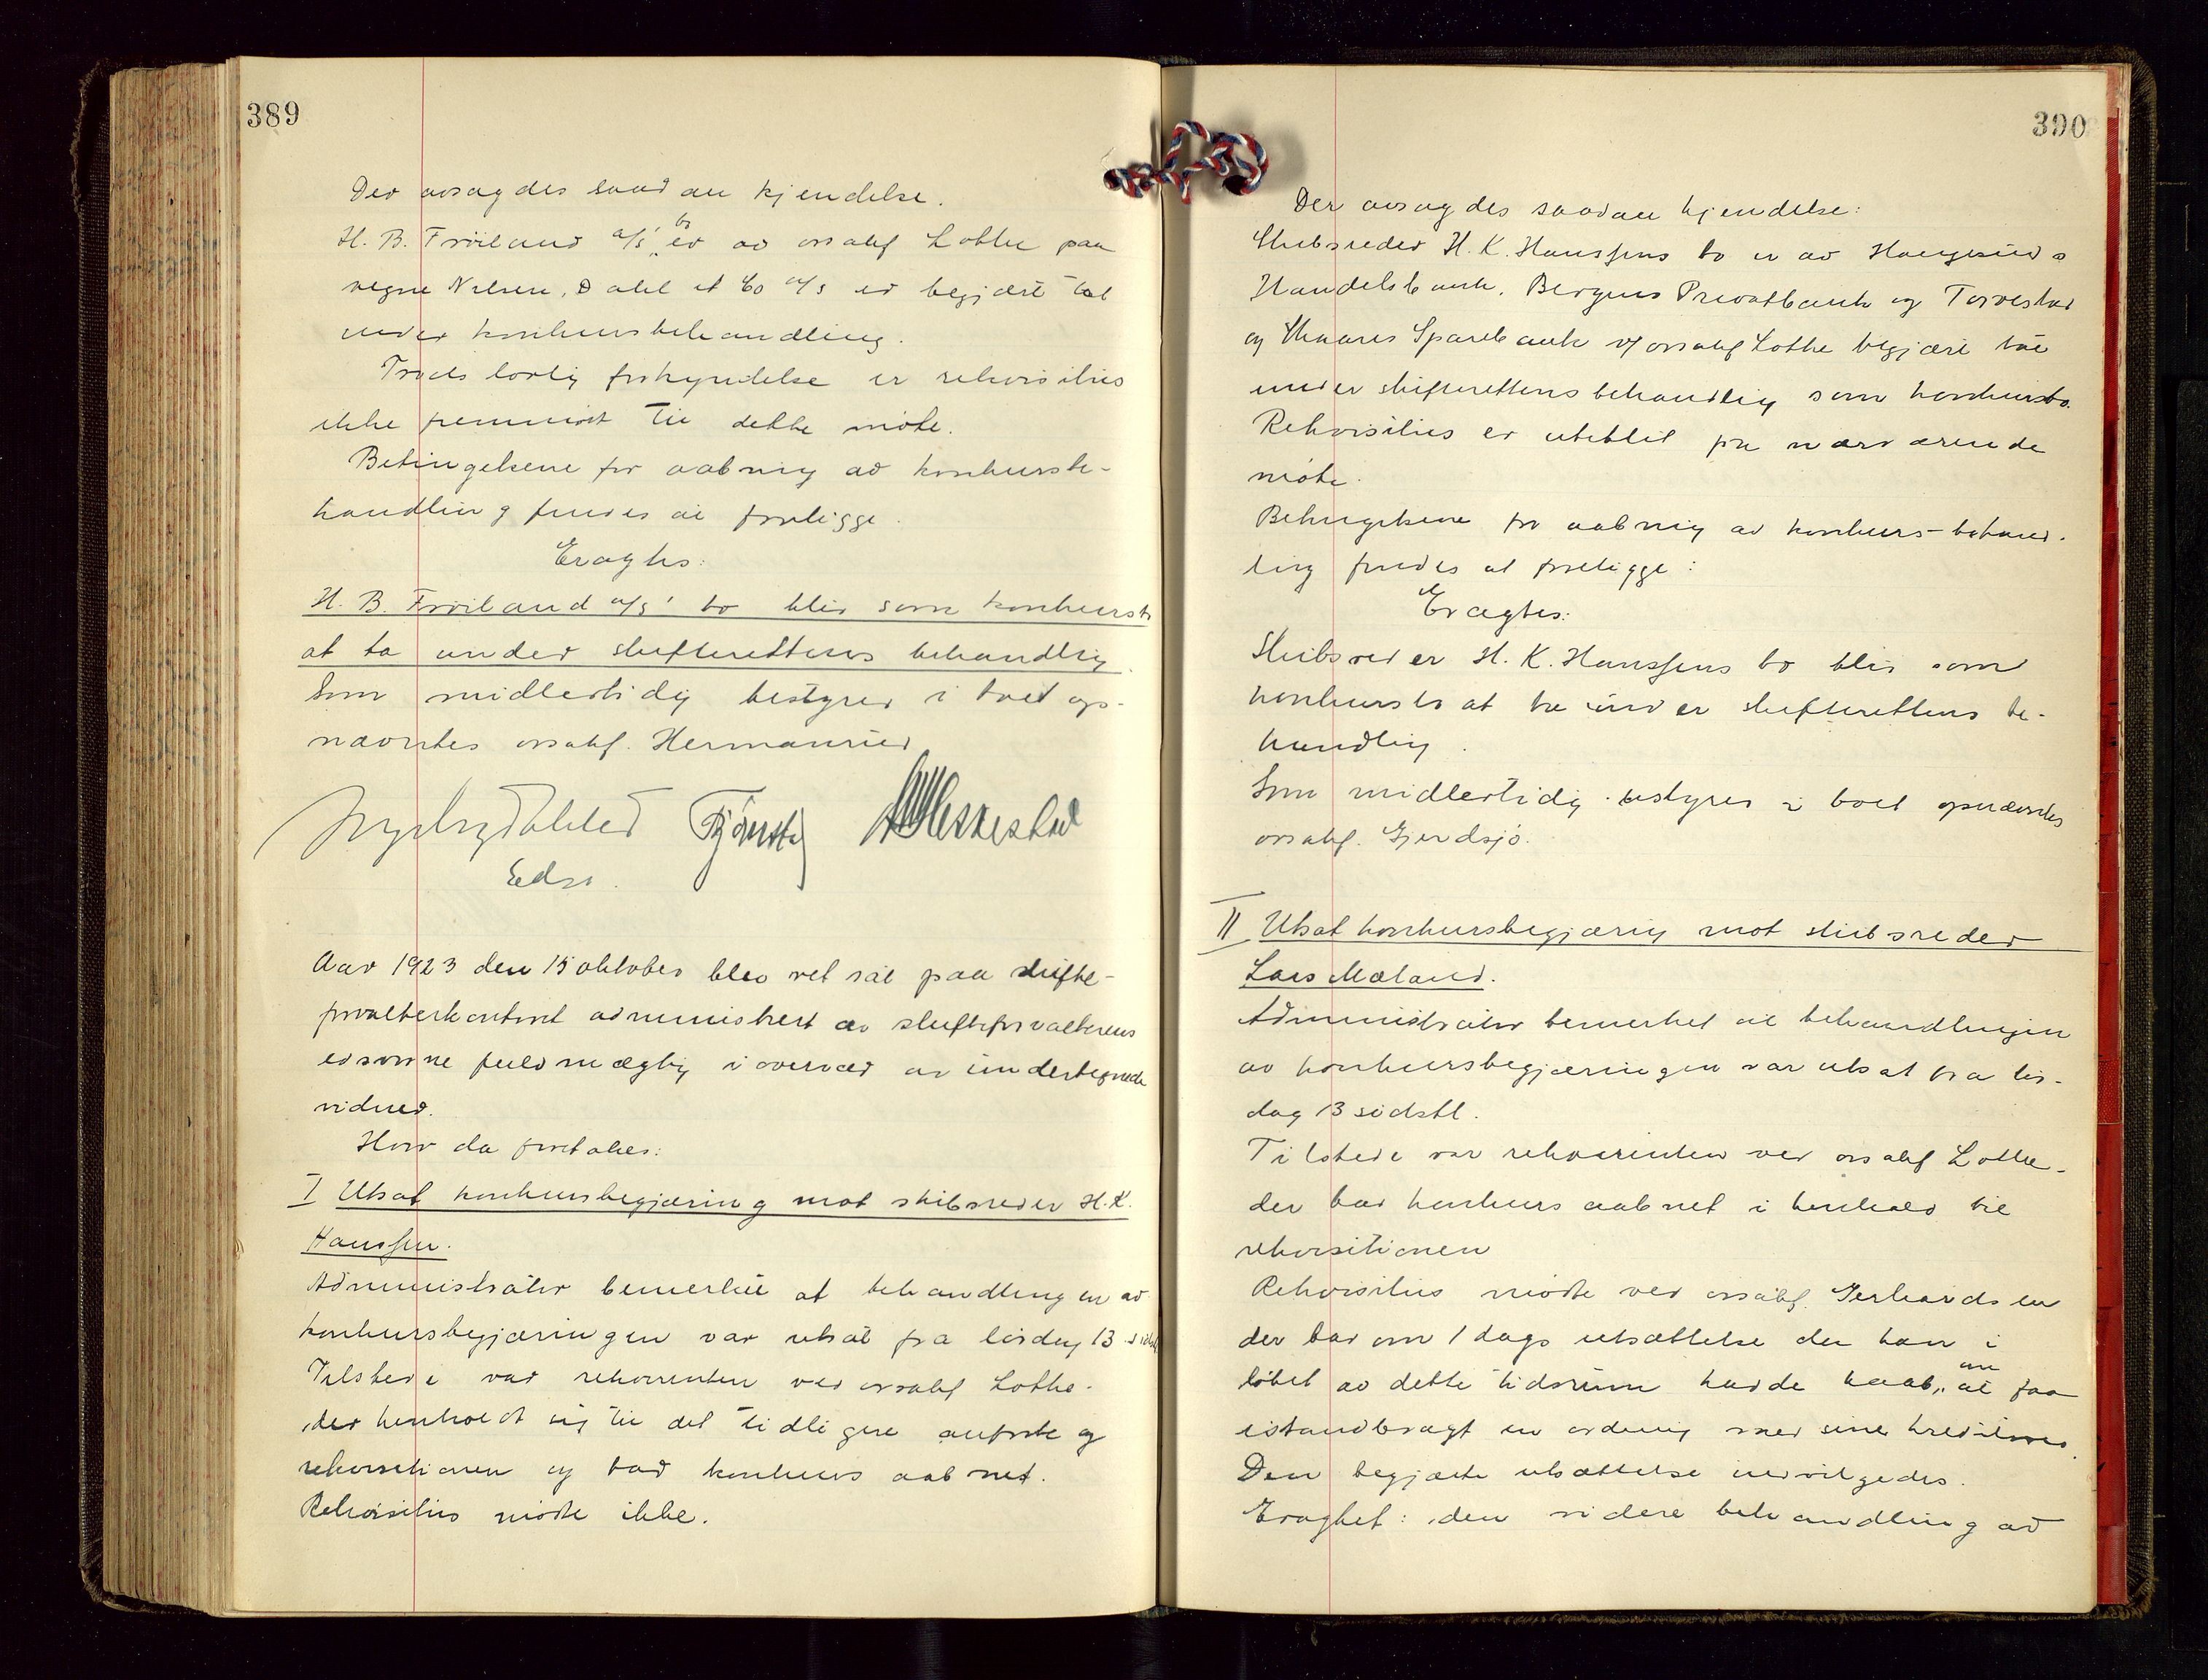 389
Der avsagdes saadan kjendelse.
H. B. Frøiland a/s' bo er av o.r.sakf Lothe paa
vegne Nilsen, Dahl et Co a/s er begjært tat
under konkursbehandling.
Trods lovlig forkyndelse er rekvisitus
ikke fremmøt til dette møte.
Betingelsene for aabning av konkursbe-
handling findes at foreligge.
Eragtes:
H. B. Frøiland a/s' bo blir som konkursbo
at ta under skifterettens behandling.
Som midlertidig bestyrer i boet op-
nævntes o.r.sakf. Hermansen
Edsv.
Aar 1923 den 15 oktober blev ret sat paa skifte-
forvalterkontoret administrert av skifteforvalterens
edsvorne fuldmægtig i overvær av undertegnede
vidner.
Hvor da foretokes:
I Utsat konkursbegjæring mot skibsreder H.K.
Hanssen.
Administrator bemerket at behandlingen av
konkursbegjæringen var utsat fra lørdag 13 sidstl
Tilstede var rekvirenten ved o.r.sakf Lothe.
der henholdt sig til det tidligere anførte og
rekvisitionen og bad konkurs aabnet.
Rekvisitus møtte ikke.
390
Der avsagdes saadan kjendelse:
Skibsreder H. K. Hanssens bo er av Haugesunds
Handelsbank, Bergens Privatbank og Torvestad
og Skaares Sparebank v/ o.r.sakf Lothe begjært tat
under skifterettens behandling som konkursbo.
Rekvisitus er uteblit fra nærværende
møte.
Betingelsene for aabning av konkurs-behand-
ling findes at foreligge:
Eragtes:
Skibsreder H. K. Hanssens bo blir som
konkursbo at ta under skifterettens be-
handling.
Som midlertidig bestyrer i boet opnævntes
o.r.sakf. Gjerdsjø.
II Utsat konkursbegjæring mot skibsreder
Lars Mæland.
Administrator bemerket at behandlingen
av konkursbegjæringen var utsat fra lør-
dag 13 sidstl.
Tilstede var rekvirenten ved o.r.sakf Lothe.
der bad konkurs aabnet i henhold til
rekvisitionen
Rekvisitus møtte ved o.r.sakf. Gerhardsen
der bad om 1 dags utsættelse da han i
løbet av dette tidsrum hadde haab om at faa
istandbragt en ordning med sine kreditorer.
Den begjærte utsættelse indvilgedes.
Eragtet: den videre behandling av